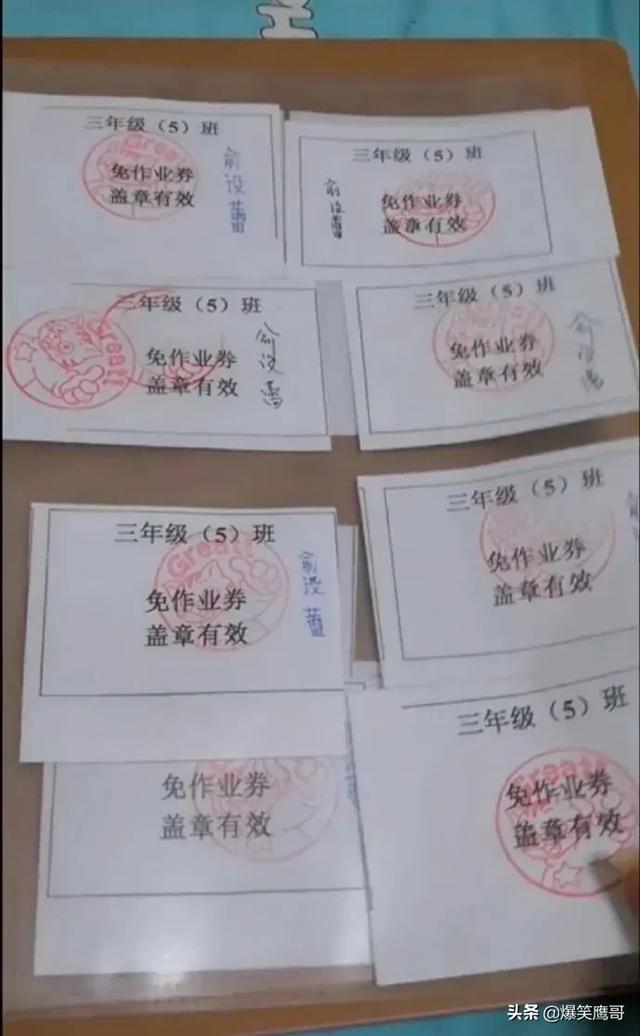 三年级（5）班
Great!
免作业券
盖章有效
俞设蕾
三年级（5）班
免作业券
盖章有效
俞设蕾
三年级（5）班
Great!
免作业券
盖章有效
三年级（5）班
免作业券
盖章有效
三年级（5）班
Great!
免作业券
盖章有效
俞设蕾
三年级（5）班
免作业券
盖章有效
免作业券
盖章有效
三年级（5）班
Great!
免作业券
盖章有效
头条 @爆笑鹰哥